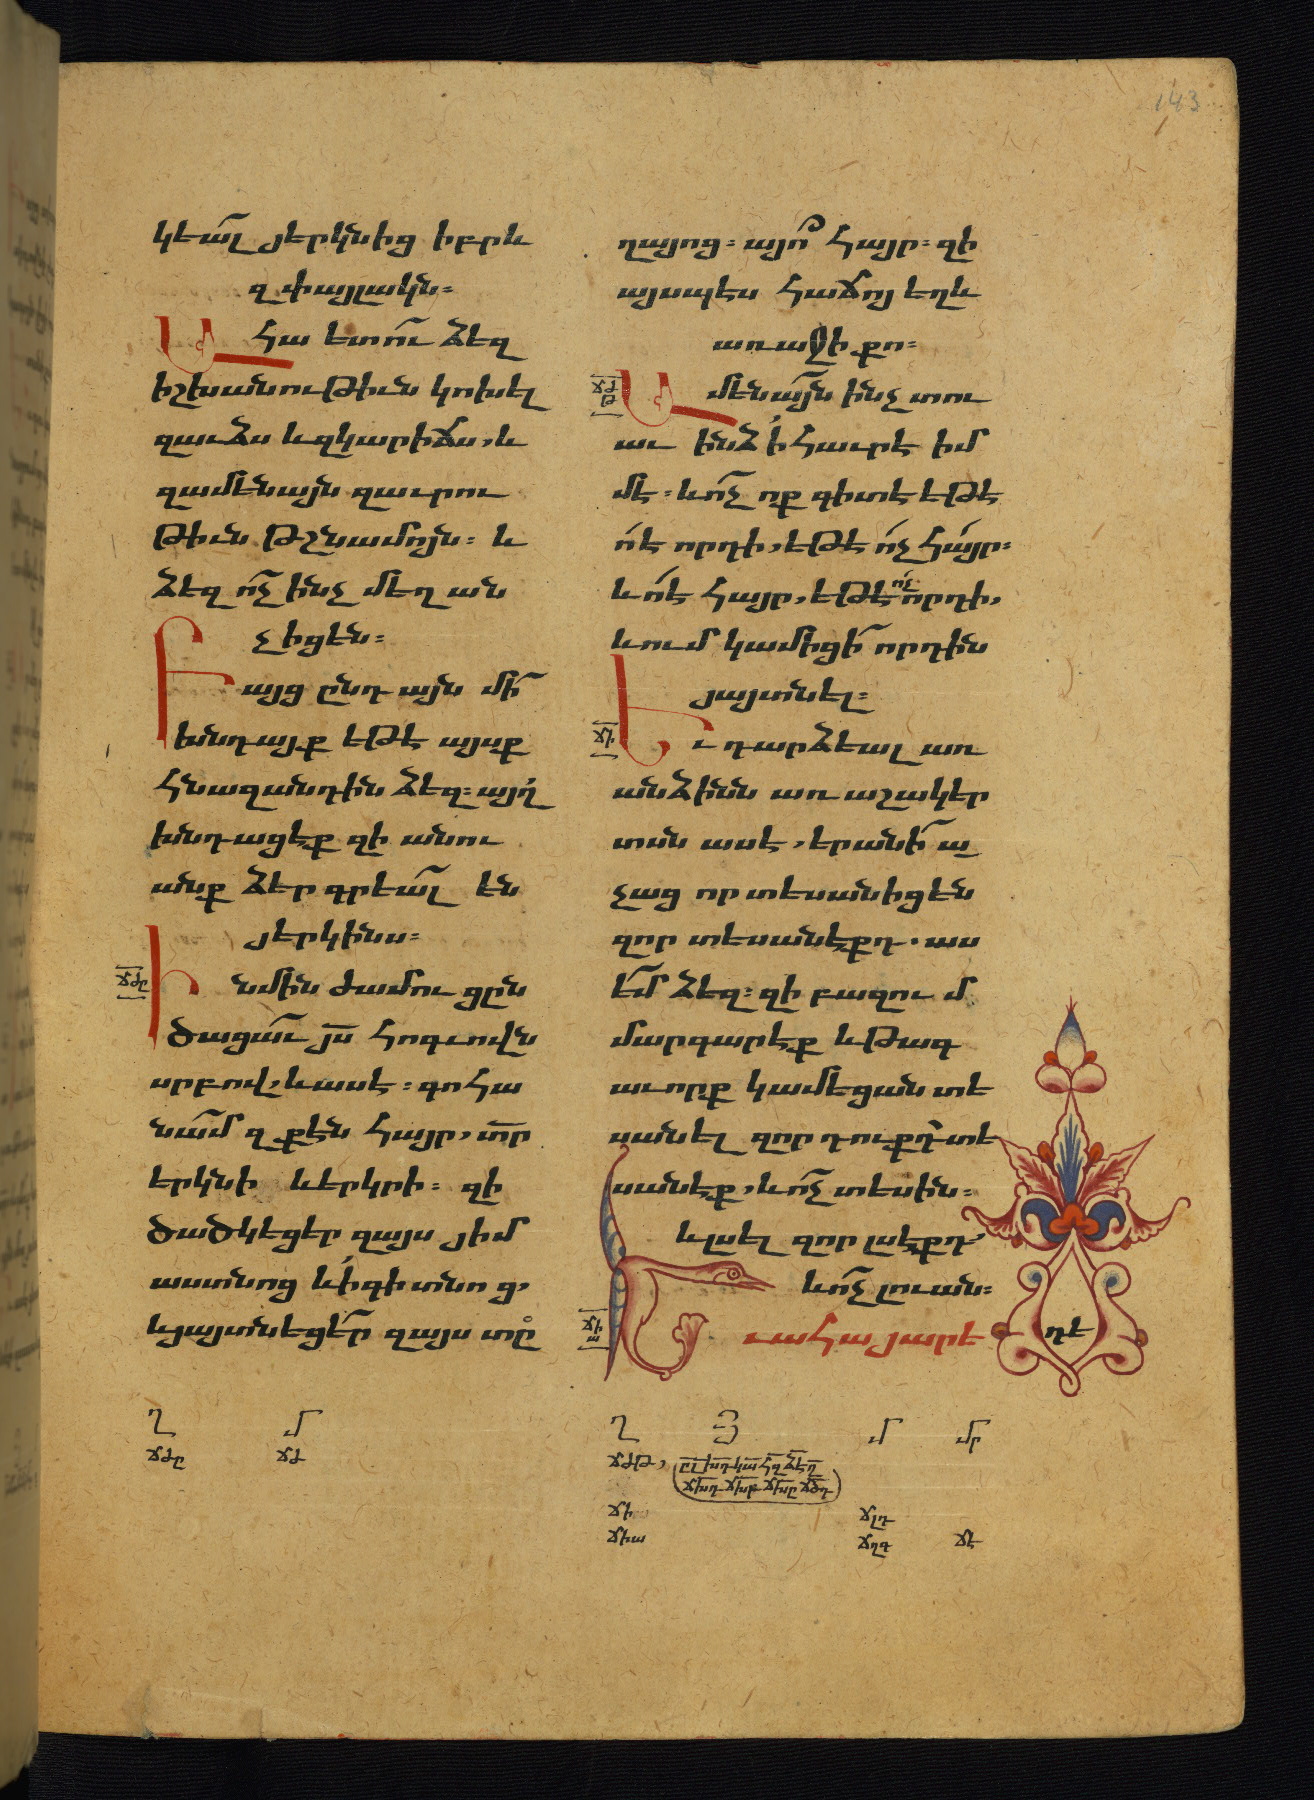 143
կեալ յերկնից իբրև
զփայլակն։
Ահա ետու ձեզ
իշխանութիւն կոխել
զաւձս և զկարիճս, և
զամենայն զաւրու
թիւն թշնամոյն։ և
ձեզ ոչ ինչ մեղ ան
չիցեն։
Բայց ընդ այն մի
խնդայք եթե այսք
հնազանդին ձեզ։ այղ
խնդացեք զի անու
անք ձեր գրեալ են
յերկինս։
ճժը
Ինմին ժամու ցըն
ծացաւ յս հոգւովն
սրբով, և ասե։ գոհա
նամ զքեն հայր, տր
երկնի և երկրի։ զի
ծածկեցեր զայս յիմ
աստնոց և ի գիտնոց,
և յայտնեցեր զայս տը
ղայոց։ այո հայր։ զի
այսպես հաճոյ եղև
առաջի քո։
ճժթ
Ամենայն ինչ տու
աւ ինձ ի հաւրե իմ
մե։ և ոչ ոք գիտե եթե
ով է որդի, եթե ոչ հայր։
և ով է հայր, եթե ոչ որդի,
և ում կամիցի որդին
յայտնել։
ճի
Եւ դարձեալ առ
անձինն առ աշակեր
տսն ասե, երանի ա
չաց որ տեսանիցեն
զոր տեսանեքդ. աս
եմ ձեզ։ զի բազում
մարգարեք և թագ
աւորք կամեցան տե
սանել զոր դուքդ տե
սանեք, և ոչ տեսին։
և լսել զոր լսեքդ,
և ոչ լուան։
ճիա
Եւ ահա յարե
դե
ղ մ
ճժը ճժ
ղ յ մ մր
ճժթ,
ճի ճլդ
ճիա ճղգ ճե